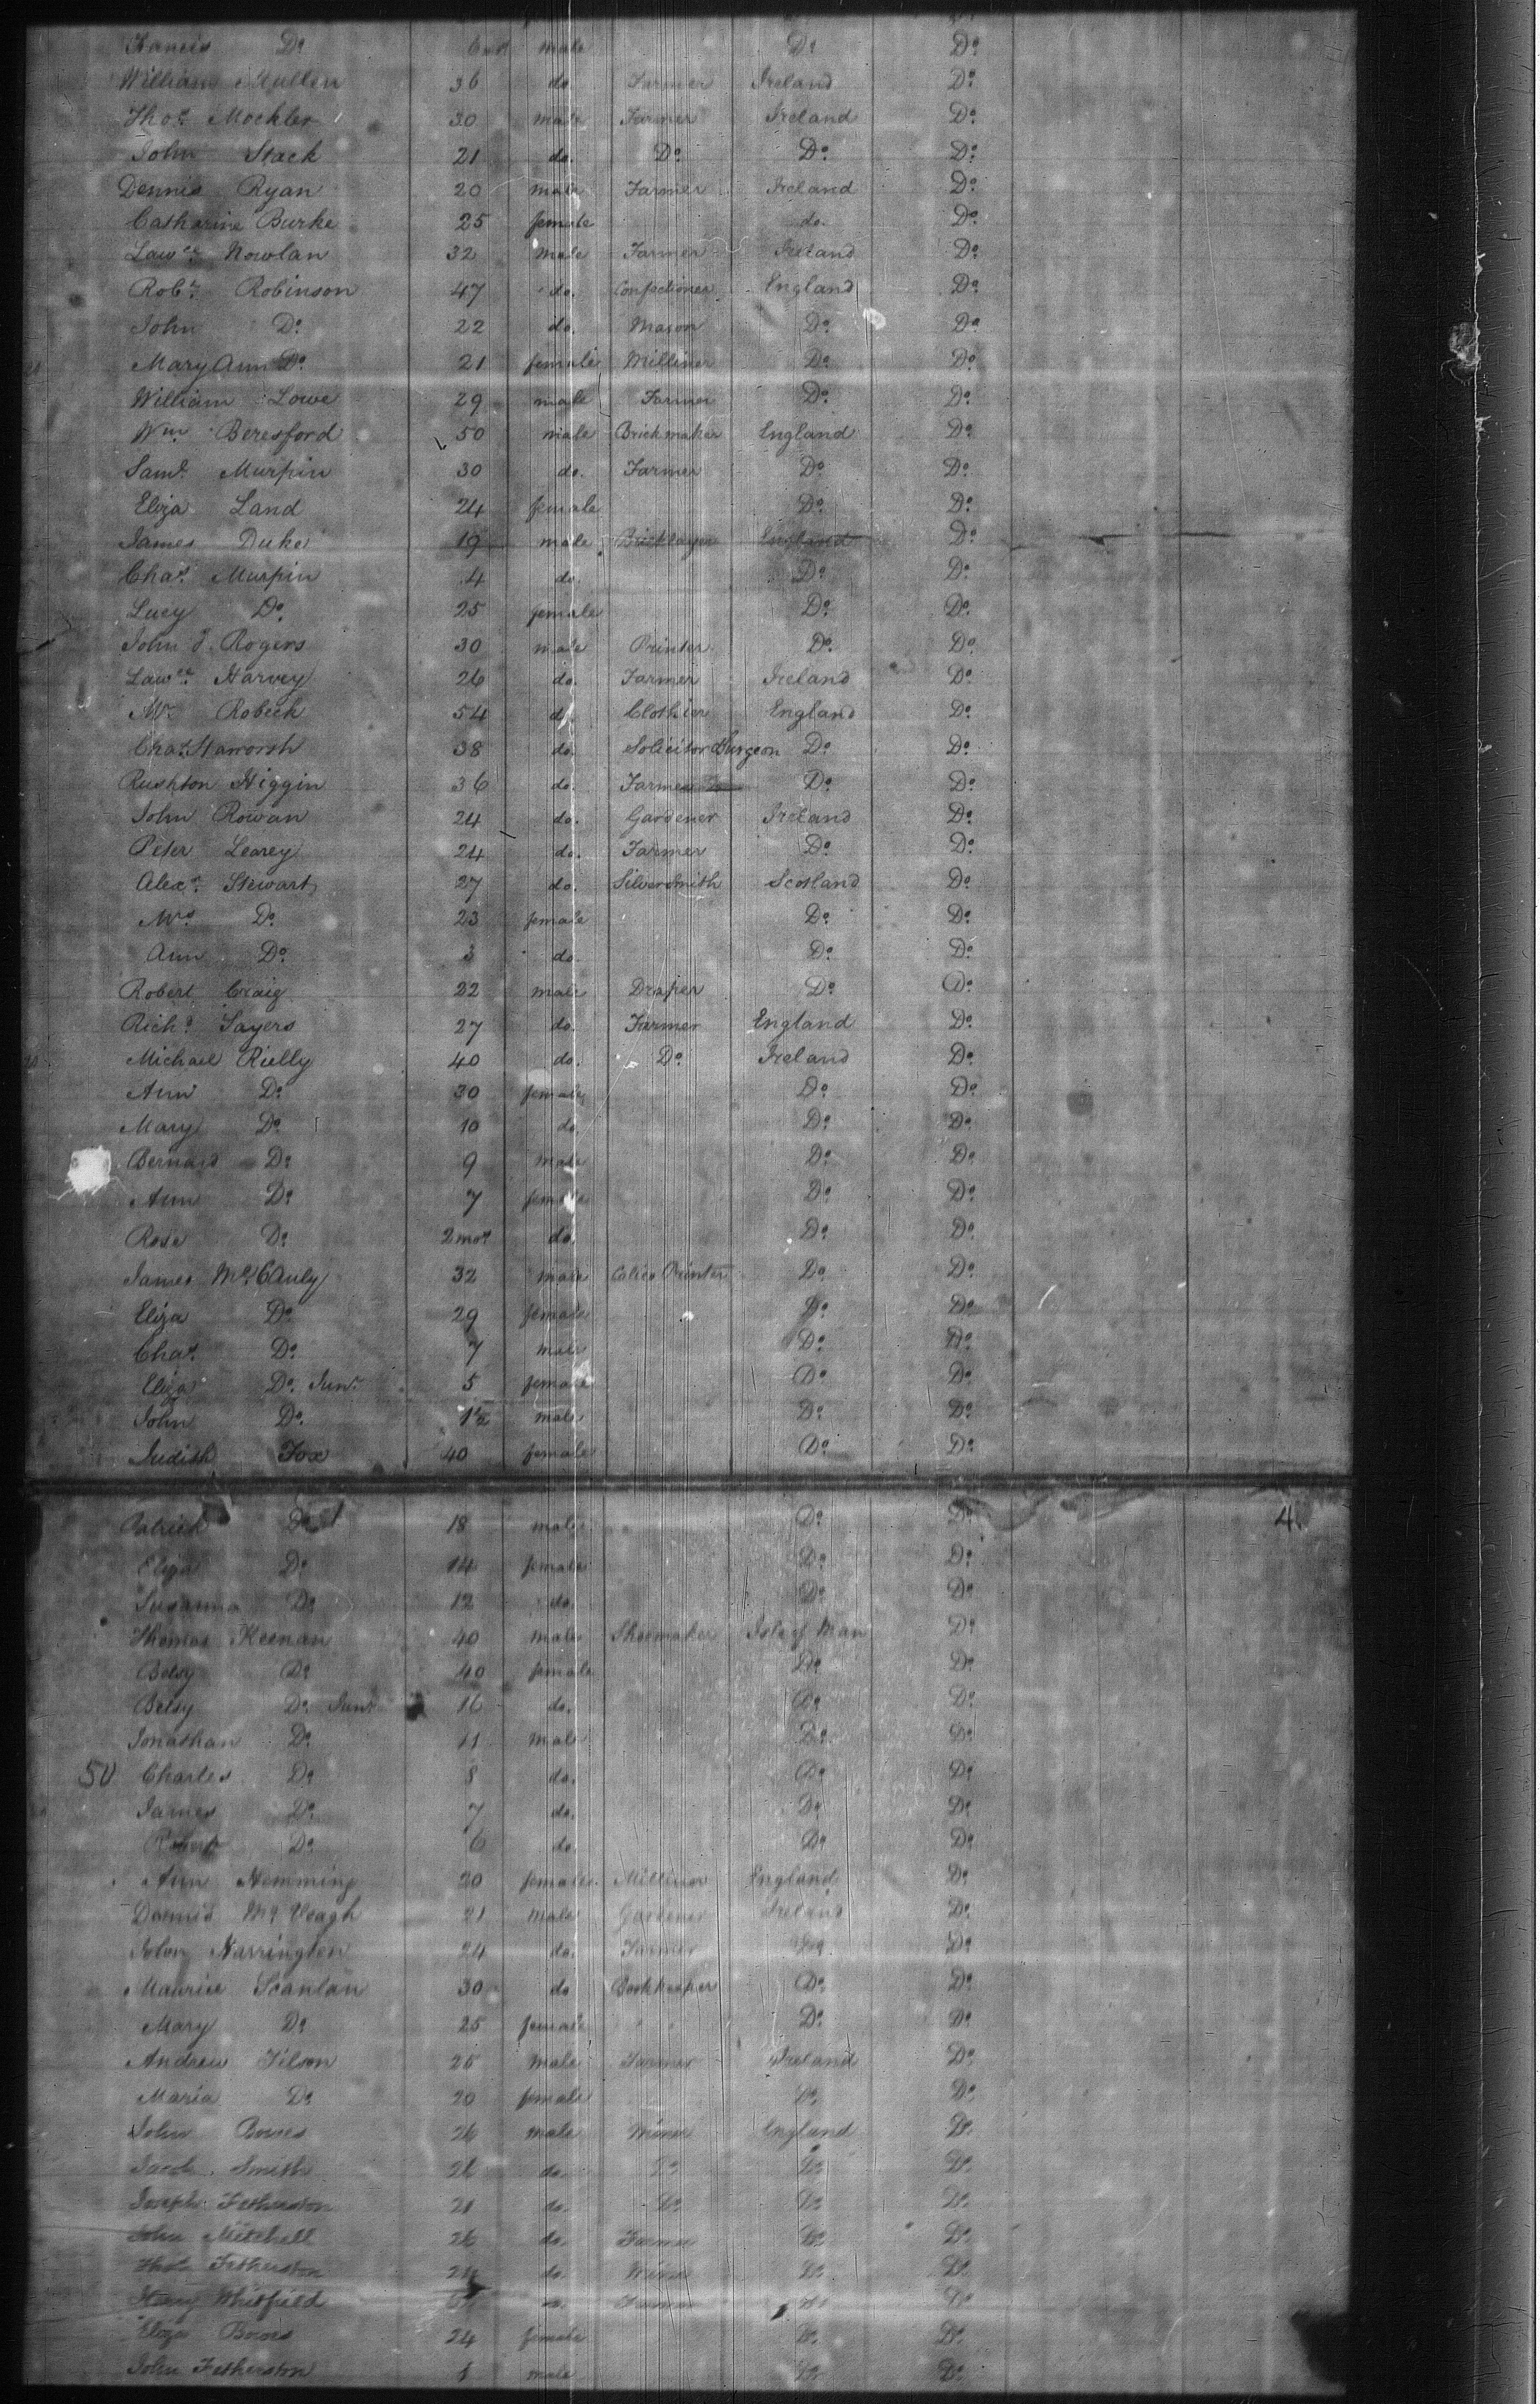 Francis Do. 6 male Do. Do.
William Mullen 36 do. Farmer Ireland Do.
Thos. Mockler 30 male Farmer Ireland Do.
John Stack 21 do. Do. Do. Do.
Dennis Ryan 20 male Farmer Ireland Do.
Catharine Burke 25 female do. Do.
Lawce. Nowlan 32 male Farmer Ireland Do.
Robt. Robinson 47 do. Confectioner England Do.
John Do. 22 do. Mason Do. Do.
Mary Ann Do. 21 female Milliner Do. Do.
William Lowe 29 male Farmer Do. Do.
Wm. Beresford 50 male Brickmaker England Do.
Saml. Murpin 30 do. Farmer Do. Do.
Eliza Land 24 female Do. Do.
James Duke 19 male Bricklayer England Do.
Chas. Murpin 4 do. Do. Do.
Lucy Do. 25 female Do. Do.
John J. Rogers 30 male Printer Do. Do.
Lawce. Harvey 26 do. Farmer Ireland Do.
Mr. Robeck 54 do. Clothier England Do.
Chas. Haworth 38 do. Solicitor Surgeon Do. Do.
Rushton Higgin 36 do. Farmer Do. Do.
John Rowan 24 do. Gardener Ireland Do.
Peter Learey 24 do. Farmer Do. Do.
Alexr. Stewart 27 do. Silversmith Scotland Do.
Mrs Do. 23 female Do. Do.
Ann Do. 3 do. Do. Do.
Robert Craig 22 male Draper Do. Do.
Richd. Sayers 27 do. Farmer England Do.
Michael Rielly 40 do. Do. Ireland Do.
Ann Do. 30 female Do. Do.
Mary Do. 10 do. Do. Do.
Bernard Do. 9 male Do. Do.
Ann Do. 7 female Do. Do.
Rose Do. 2 mos. do. Do. Do.
James McCAuly 32 male Calico Printer Do. Do.
Eliza Do. 29 female Do. Do.
Chas. Do. 7 male Do. Do.
Eliza Do. Junr. 5 female Do. Do.
John Do. 1½ male Do. Do.
Judith Fox 40 female Do. Do.
Patrick Do. 18 male Do. Do. 4
Eliza Do. 14 female Do. Do.
Susanna Do. 12 do. Do. Do.
Thomas Keenan 40 male Shoemaker Isle of Man Do.
Betsy Do. 40 female Do. Do.
Betsy Do. Junr. 16 do. Do. Do.
Jonathan Do. 11 male Do. Do.
50 Charles Do. 8 do. Do. Do.
James Do. 7 do. Do. Do.
Robert Do. 6 do. Do. Do.
Ann Hemming 20 female Milliner England Do.
Dennis McVeagh 21 male Gardener Ireland Do.
John Harrington 24 do. Farmer Do. Do.
Maurice Scanlan 30 do Bookkeeper Do. Do.
Mary Do. 25 female Do. Do.
Andrew Filson 25 male Farmer Ireland Do.
Maria Do. 20 female Do. Do.
John Bowes 26 male Miner England Do.
Jacob Smith 26 do. Do. Do. Do.
Joseph Fetherston 21 do. Do. Do. Do.
John Mitchell 26 do. Farmer Do. Do.
Thos. Fetherston 24 do. Miner Do. Do.
Whitfield Farmer Do. Do.
Eliza Bowes 24 female Do. Do.
John Fetherston 1 male Do. Do.